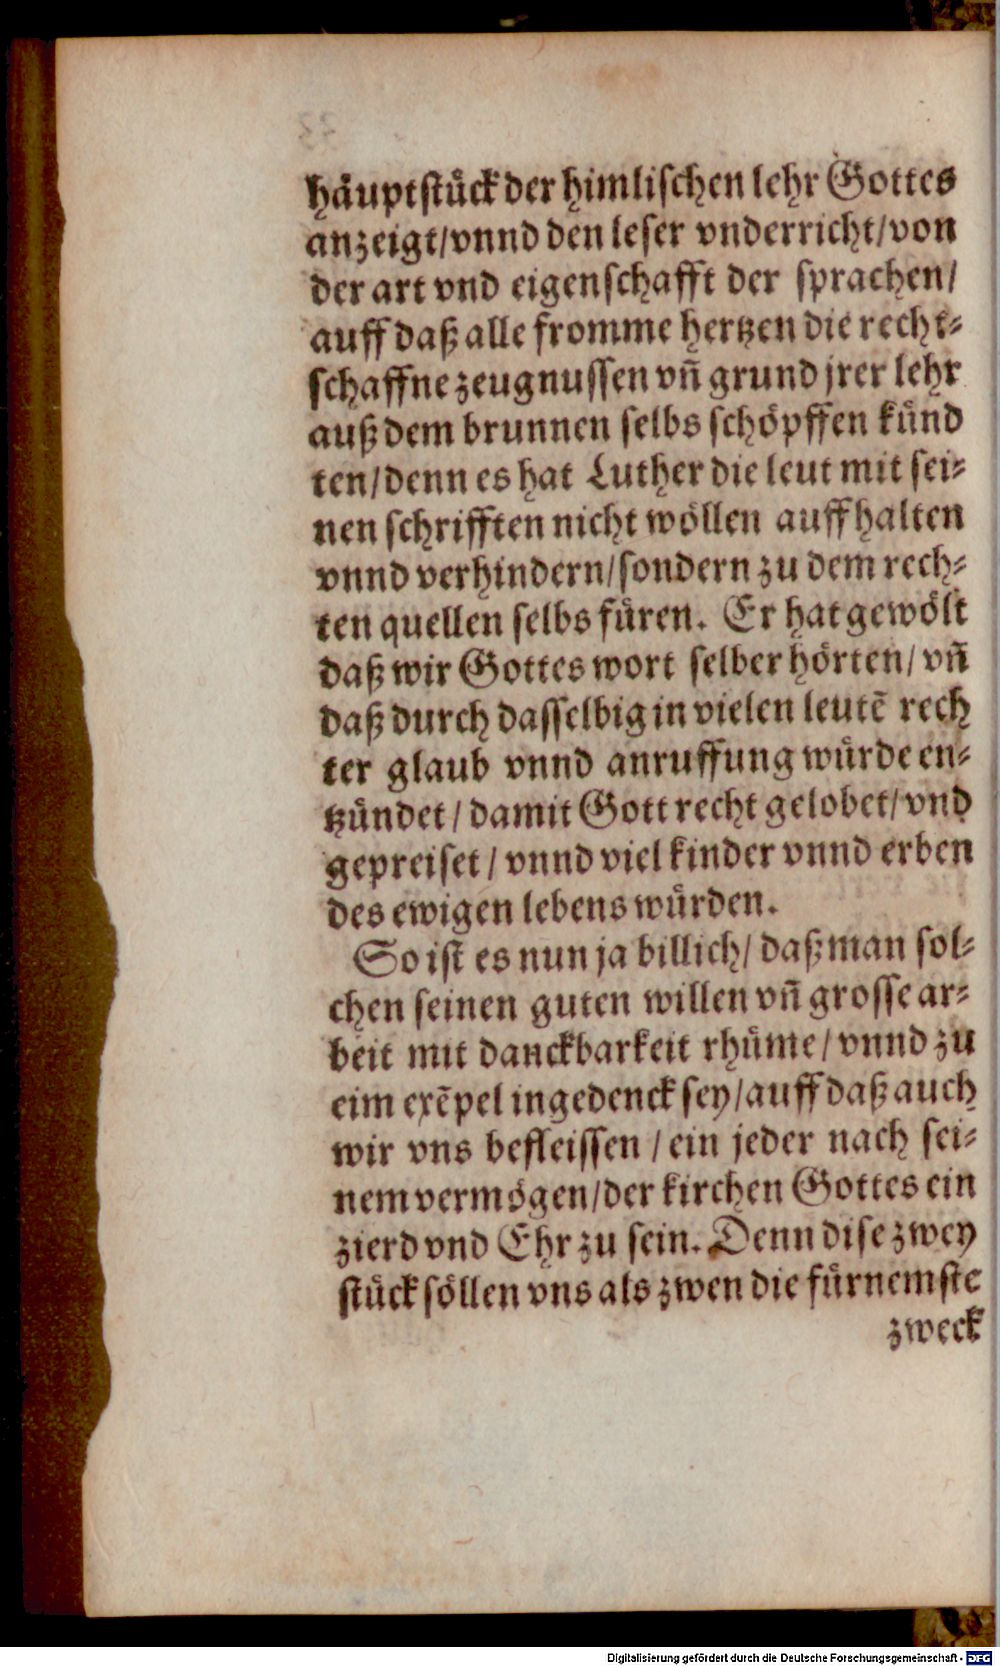 häuptstück der himlischen lehr Gottes
anzeigt/vnnd den leser vnderricht/von
der art vnd eigenschafft der sprachen/
auff daß alle fromme hertzen die recht-
schaffne zeugnussen vñ grund jrer lehr
auß dem brunnen selbs schöpffen künd
ten/denn es hat Luther die leut mit sei-
nen schrifften nicht wöllen auffhalten
vnnd verhindern/sondern zu dem rech-
ten quellen selbs füren. Er hat gewölt
daß wir Gottes wort selber hörten/vñ
daß durch dasselbig in vielen leutẽ rech
ter glaub vnnd anruffung würde en-
tzündet/damit Gott recht gelobet/vnd
gepreiset/vnnd viel kinder vnnd erben
des ewigen lebens würden.
So ist es nun ja billich/daß man sol-
chen seinen guten willen vñ grosse ar-
beit mit danckbarkeit rhüme/vnnd zu
eim exẽpel ingedenck sey/auff daß auch
wir vns befleissen/ein jeder nach sei-
nem vermögen/der kirchen Gottes ein
zierd vnd Ehr zu sein. Denn dise zwey
stück söllen vns als zwen die fürnemste
zweck
Digitalisierung gefördert durch die Deutsche Forschungsgemeinschaft - DFG